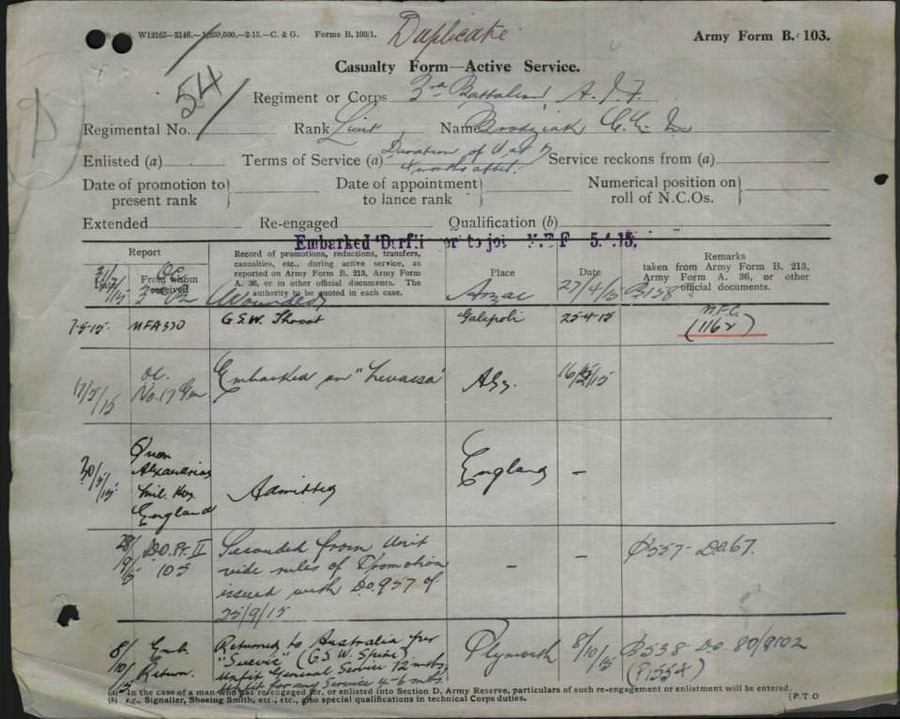 W12165—2146.—1,250,000.—2-15.—C. & G. Forms B. 103/1.
Duplicate
Army Form B. 103.
54
D
Casualty Form—Active Service.
Regiment or Corps 3rd Battalion A.I.F.
Regimental No. Rank Lieut Name Brodziak
Enlisted (a) Terms of Service (a) Duration of War & 4 months after. Service reckons from (a)
Date of promotion to present rank
Date of appointment to lance rank
Numerical position on roll of N.C.Os.
Extended Re-engaged Qualification (b)
Embarked to join 5.4.15.
Report
Date
From whom received
Record of promotions, reductions, transfers, casualties, etc., during active service, as reported on Army Form B. 213, Army Form A. 36, or in other official documents. The authority to be quoted in each case.
Place
Date
Remarks taken from Army Form B. 213, Army Form A. 36, or other official documents.
O.C. Wounded Anzac 27/4/15 B138
7-5-15 MFA330 G.S.W. Throat Galipoli 25-4-15 (1162)
17/5/15 O.C. No. 17 Embarked on Alex.
30/5/15 Queen Alexandrias Mil. Hos. England Admitted England –
28/9/15 D.O. Pt. II 105 Seconded from Unit
vide rules of Promotion
issued with D.O. 957 of
25/9/15 – – D.O. 67.
8/10/15 Emb. Return. Returned to Australia per
"Suevic" (G.S.W. Spine) Plymouth 8/10/15 B538 D.O. 80/9102
unfit General Service 12 mths
any Service 4-6 mths.
(a) In the case of a man who has re-engaged for, or enlisted into Section D, Army Reserve, particulars of such re-engagement or enlistment will be entered.
(b) e.g., Signaller, Shoeing Smith, etc., etc., also special qualifications in technical Corps duties. [P.T.O